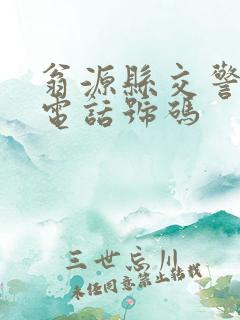 翁源縣交警
電話號碼
三世忘川
未经同意禁止转载